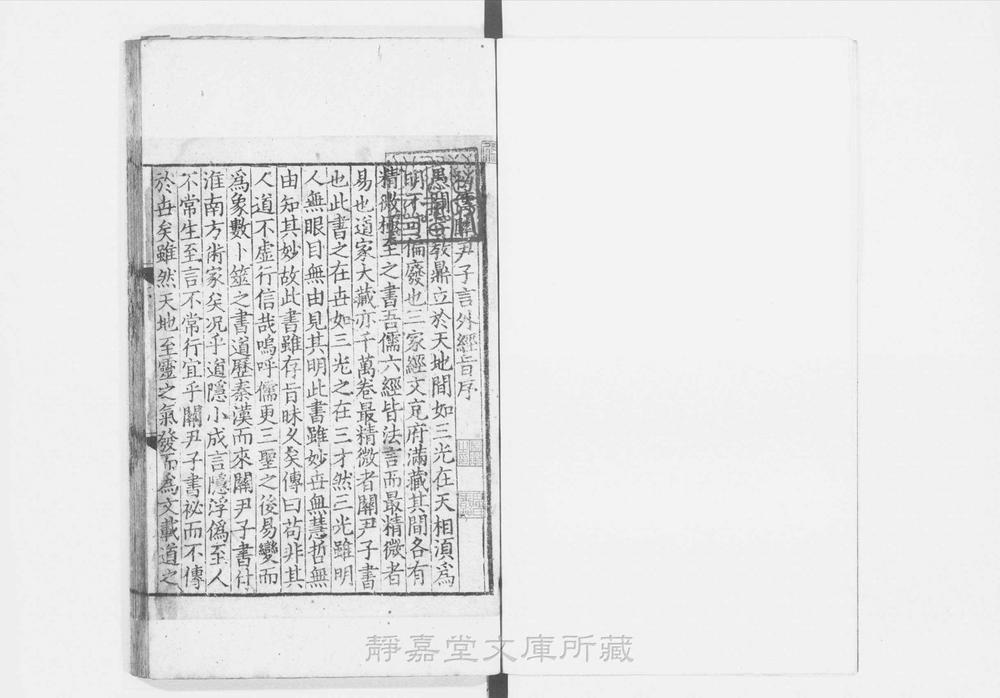 尹子言外經旨序
教鼎立於天地間如三光在天相湏爲
明不可偏廢也三家經文充府滿藏其間各有
精微極至之書吾儒六經皆法言而最精微者
易也道家大藏亦千萬卷最精微者關尹子書
也此書之在世如三光之在三才然三光雖明
人無眼目無由見其明此書雖妙世無慧哲無
由知其妙故此書雖存旨昧久矣傳曰苟非其
人道不虛行信哉嗚呼儒更三聖之後易變而
爲象數卜筮之書道歷秦漢而來關尹子書付
淮南方術家矣况乎道隱小成言隱浮僞至人
不常生至言不常行宜乎關尹子書祕而不傳
於世矣雖然天地至靈之氣發而爲文載道之
靜嘉堂文庫所藏